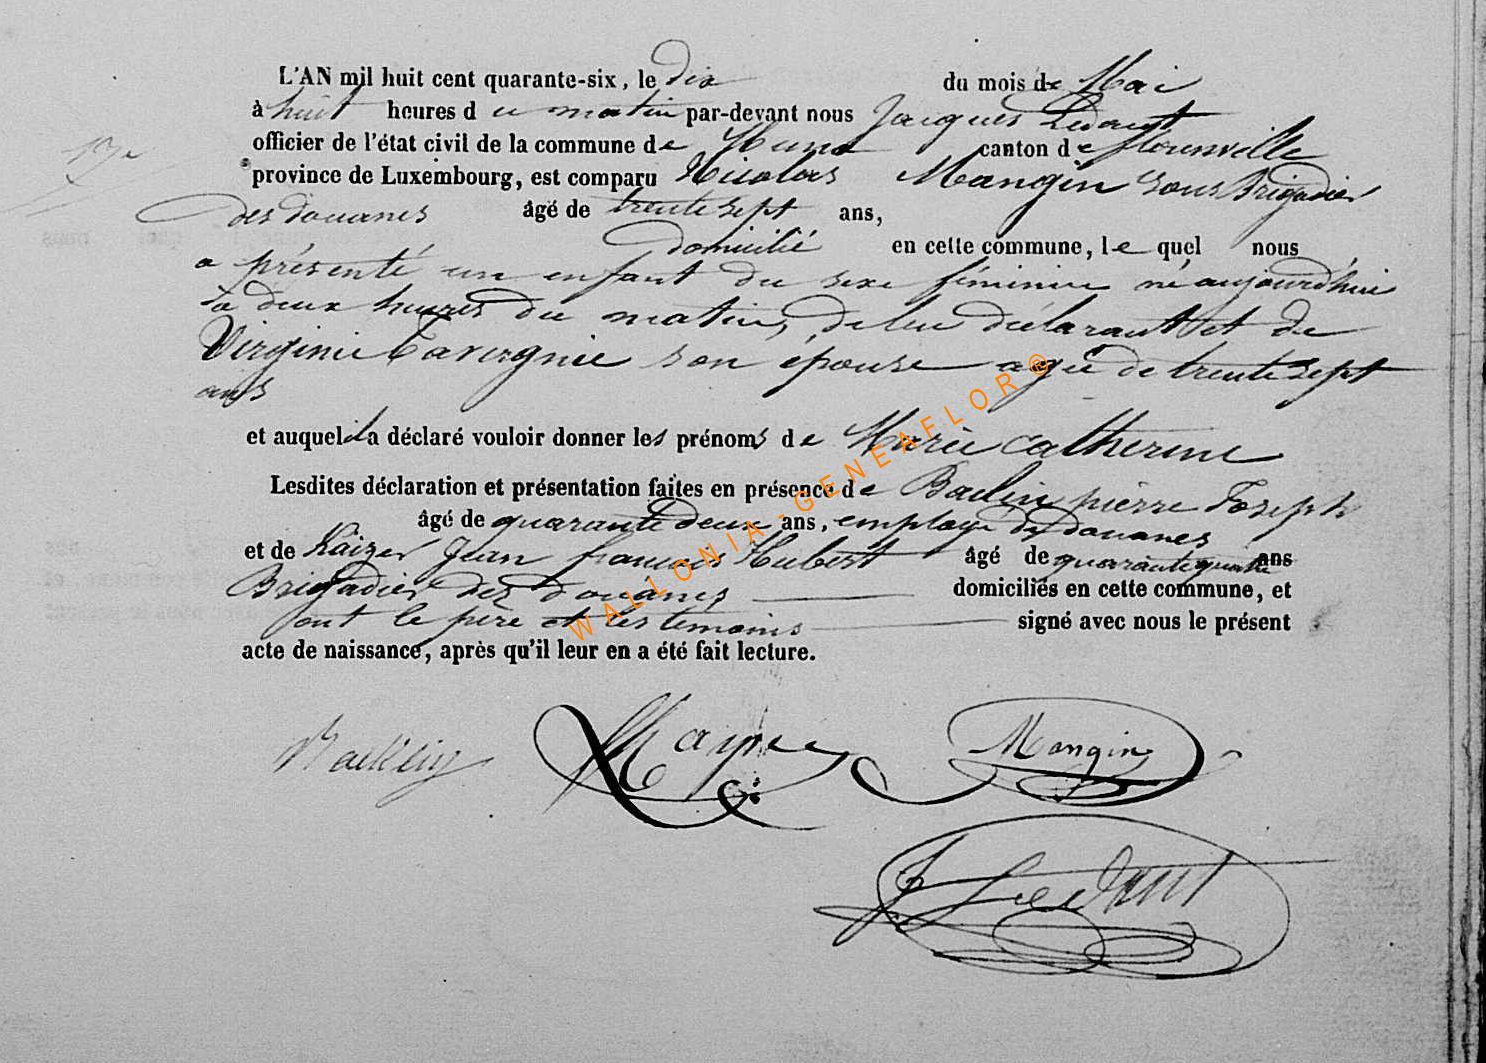 L'AN mil huit cent quarante-six, le dix du mois de Mai
à huit heures du matin par-devant nous Jacques Ledant
officier de l'état civil de la commune de Muno canton de florenville
17e
province de Luxembourg, est comparu Nicolas Mangin sous Brigadier
des douanes âgé de trente sept ans,
domicilié en cette commune, lequel nous
a présenté un enfant du sexe féminin né aujourd'hui
à deux heures du matin, de lui déclarant et de
Virginie Tavergnie son épouse agée de trente sept
ans
et auquel il a déclaré vouloir donner les prénoms de Marie Catherine
Lesdites déclaration et présentation faites en présence de pierre Joseph
âgé de quarante deux ans, employé des douanes
et de Kaizer Jean françois Hubert âgé de quarante quatre ans
Brigadier des douanes domiciliés en cette commune, et
ont le père et les témoins signé avec nous le présent
acte de naissance, après qu'il leur en a été fait lecture.
Mangin
J Ledant
WALLONIA-GENEAFLOR®